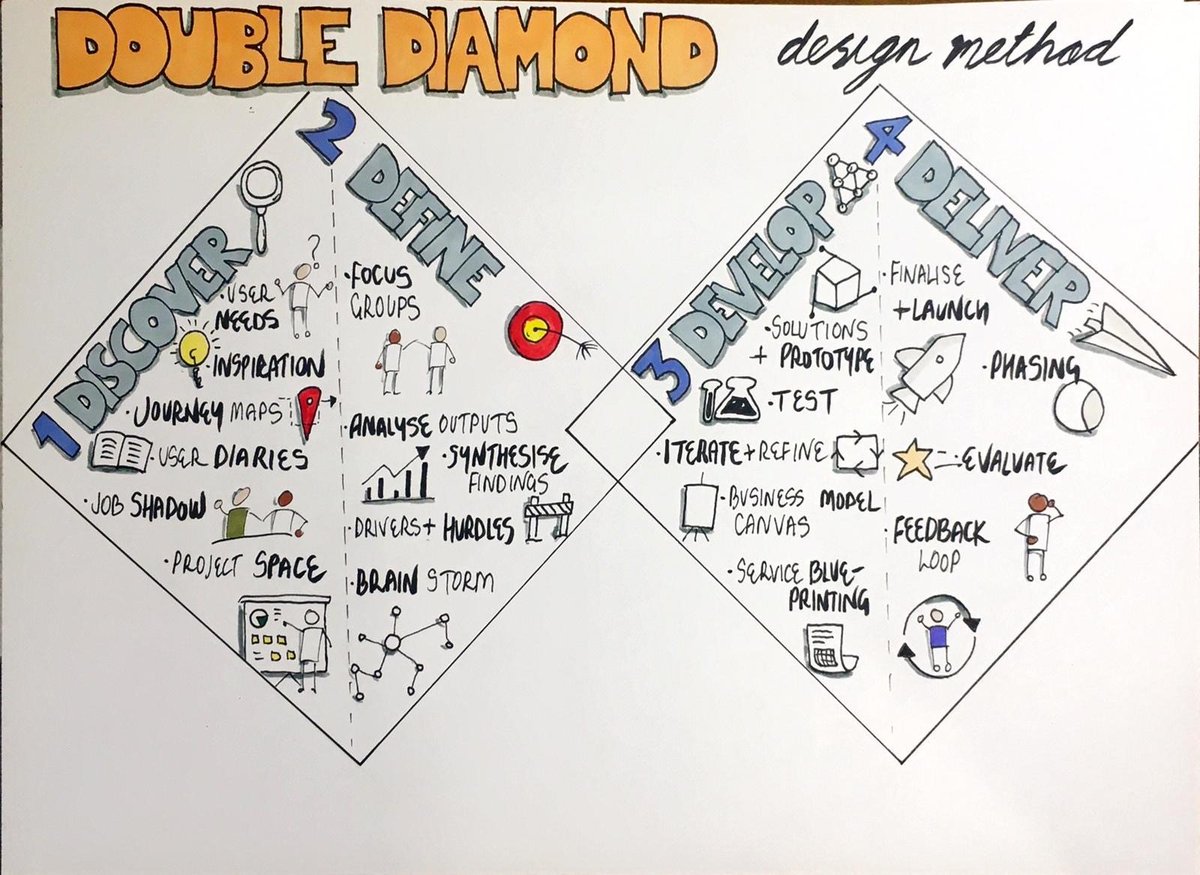 DOUBLE DIAMOND design method
1 DISCOVER
?
·USER
NEEDS
·INSPIRATION
·JOURNEY MAPS
·USER DIARIES
·JOB SHADOW
·PROJECT SPACE
2 DEFINE
·FOCUS
GROUPS
·ANALYSE OUTPUTS
·SYNTHESISE
FINDINGS
·DRIVERS + HURDLES
·BRAIN STORM
3 DEVELOP
·SOLUTIONS
+ PROTOTYPE
·TEST
·ITERATE + REFINE
·BUSINESS MODEL
CANVAS
·SERVICE BLUE-
PRINTING
4 DELIVER
·FINALISE
+LAUNCH
·PHASING
·EVALUATE
·FEEDBACK
LOOP